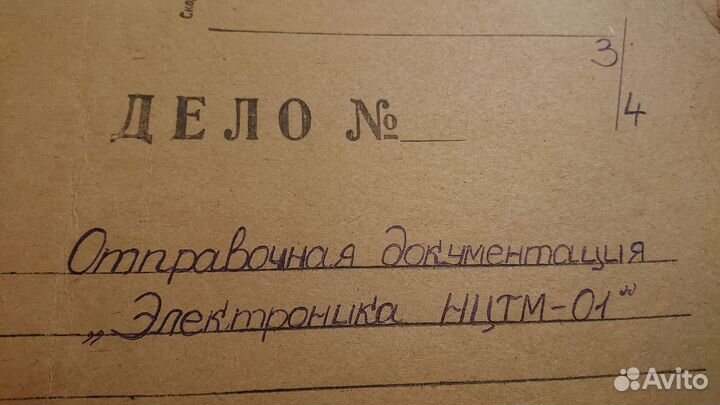 Ско
3/4
ДЕЛО №
Отправочная документация
„Электроника НЦТМ-01"
Avito